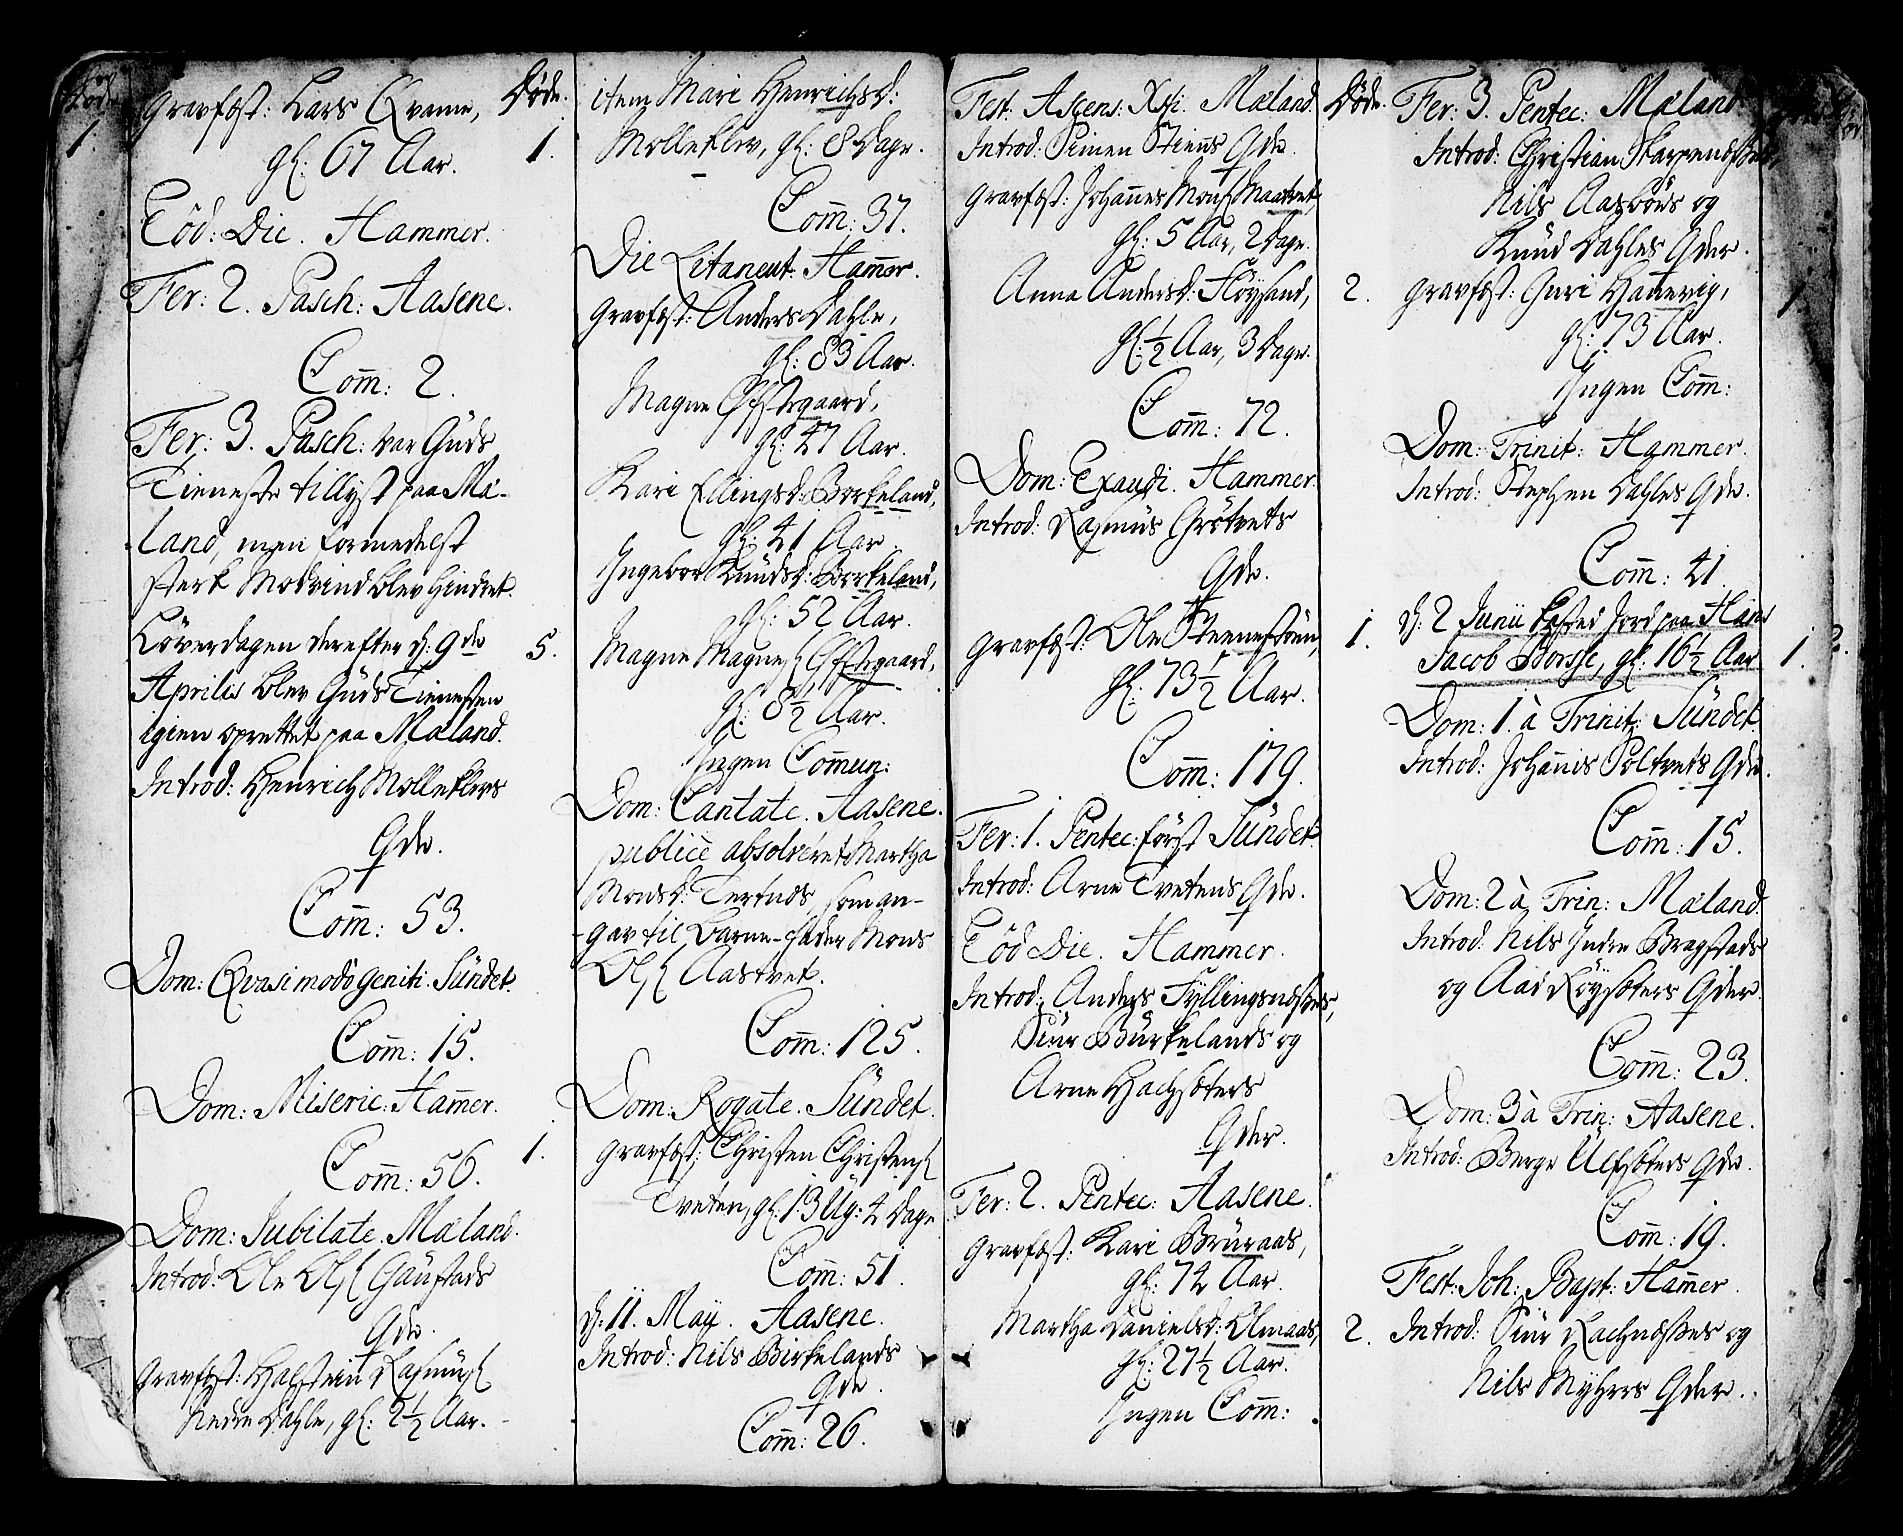 Døde
1.
Gravfæst: Lars Qvame,
gl: 67 Aar.
Eôd: Die. Hammer.
Fer: 2. Pasch: Aasene.
Com̄: 2.
Fer: 3. Pasch: var Guds
Tieneste tillyst paa Mæ-
land, men formedelst
sterk Modvind blev hindret.
Løverdagen derefter d: 9de
Aprilis blev Guds Tienesten
igien oprettet paa Mæland.
Introd: Henrich Molleklevs
Qde.
Com̄: 53.
Dom: Qvasimodogeniti. Sundet.
Com̄: 15.
Dom: Miseric: Ham̄er.
Com̄: 56.
Dom: Jubilate. Mæland.
Introd: Ole Ols: Gaustads
Qde.
Gravfæst: Halstein Rasmus:
Nedre Dahle, gl: 2½ Aar.
Døde.
1.
5.
1.
item Mari Henrichsd:
Molleklev, gl: 8 Dage.
Com̄: 37.
Die Litaneut: Ham̄er.
Gravfæst: Anders Dahle,
gl: 83 Aar.
Magne Øfstegaard,
gl: 47 Aar.
Kari Ellingsd: Borkeland,
gl: 41 Aar.
Ingebor Knudsd: Borkeland,
gl: 52 Aar.
Magne Magnes: Øfstegaard,
gl: 8½ Aar.
Ingen Com̄un:
Dom: Cantate. Aasene.
publicè absolveret Martha
Monsd: Tertnæs, som an-
gav til Barne-fader Mons
Ols: Aastvet.
Com̄: 125.
Dom: Rogate. Sundet.
Gravfæst: Christen Christens:
Tveten, gl: 13 Ug: 4 Dage
Com̄: 51.
d: 11. May. Aasene.
Introd: Nils Birkelands
Qde.
Com̄: 26.
Fest: Ascens: Xsti. Mæland.
Introd: Simen Stiens Qde.
Gravfæst: Johan̄es Mons: Maatvet,
gl: 5 Aar, 2 Dage.
Anna Andersd: Høysand,
gl: ½ Aar, 3 Dage.
Com̄: 72.
Dom: Exaudi. Hammer.
Introd: Rasmus Grøtvets
Qde.
Gravfæst: Ole Steenestøen,
gl: 73½ Aar.
Com̄: 179.
Fer: 1. Pentec: først Sundet.
Introd: Arne Tvetens Qde.
Eôd Die. Hammer.
Introd: Anders Fyllingsnæsses,
Siur Burkelands og
Arne Hachsæters
Qder.
Fer: 2. Pentec: Aasene.
Gravfæst: Kari Bruraas,
gl: 74 Aar.
Martha Danielsd: Elmaas,
gl: 27½ Aar.
Ingen Com̄:
Døde.
2.
1.
2.
Fer: 3. Pentec: Mæland
Introd: Christian
Nils Aasbøes og
Knud Dahles Qder.
Gravfæst: Guri Han̄evig,
gl: 73 Aar.
Ingen Com̄:
Dom: Trinit: Hammer.
Introd: Stephen Dahles Qde.
Com̄: 41.
d: 2 Junii kasted Jord paa Hans
Jacob Borsse, gl: 16½ Aar
Dom: 1. à Trinit: Sundet.
Introd: Johan̄is Soltvets Qde.
Com̄: 15.
Dom: 2 à Trin: Mæland.
Introd: Nils Indre Bragstads
og Aad Røysæters Qder.
Com̄: 23.
Dom: 3 à Trin: Aasene.
Introd: Berge Ulfsæters Qde.
Com̄: 19.
Fest: Joh: Bapt: Ham̄er.
Introd: Siur Rachnæsses og
Nils Myhres Qder.
1.
1.